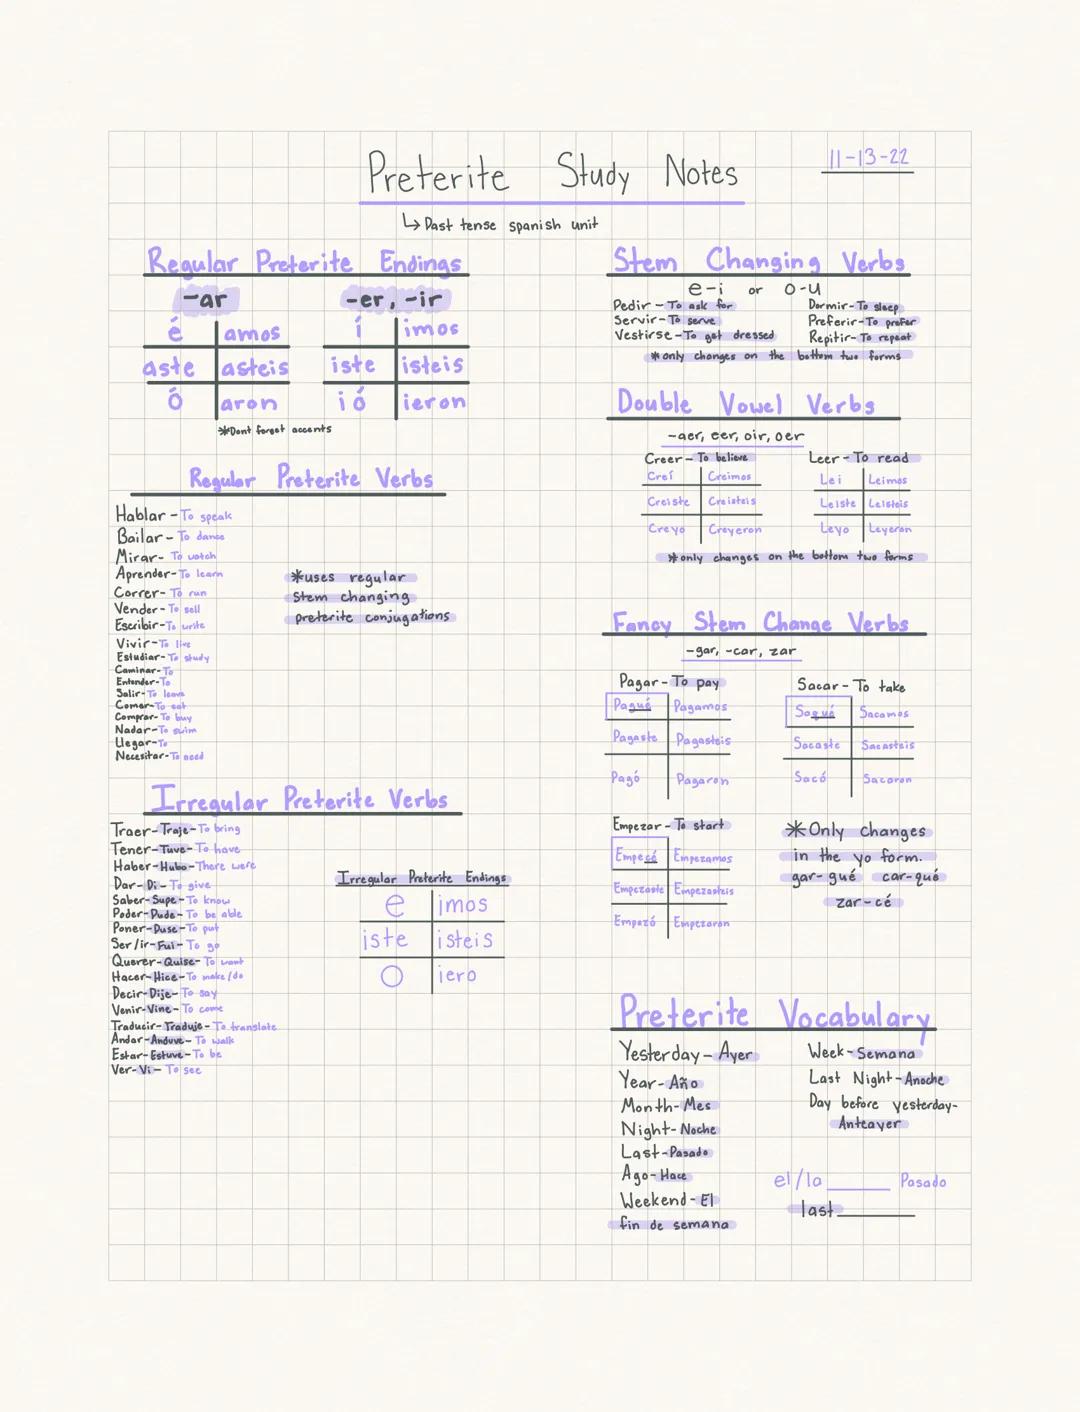 Preterite Study Notes
11-13-22
↳ Past tense spanish unit
Regular Preterite Endings
-ar
-er, -ir
é amos
aste asteis
ó aron
í imos
iste isteis
ió ieron
*Dont forget accents
Regular Preterite Verbs
Hablar - To speak
Bailar - To dance
Mirar- To watch
Aprender- To learn
Correr- To run
Vender- To sell
Escribir- To write
Vivir- To live
Estudiar- To study
Caminar- To
Entender- To
Salir- To leave
Comer- To eat
Comprar- To buy
Nadar- To swim
Llegar- To
Necesitar- To need
*uses regular
Stem changing
preterite conjugations
Irregular Preterite Verbs
Traer- Traje- To bring
Tener- Tuve- To have
Haber- Hubo- There were
Dar- Di- To give
Saber- Supe- To know
Poder- Pude- To be able
Poner- Puse- To put
Ser/ir- Fui- To go
Querer- Quise- To want
Hacer- Hice- To make/do
Decir- Dije- To say
Venir- Vine- To come
Traducir- Traduje- To translate
Andar- Anduve- To walk
Estar- Estuve- To be
Ver- Vi- To see
Irregular Preterite Endings
e imos
iste isteis
o iero
Stem Changing Verbs
e-i or o-u
Pedir - To ask for
Servir- To serve
Vestirse- To get dressed
Dormir- To sleep
Preferir- To prefer
Repitir- To repeat
*only changes on the bottom two forms
Double Vowel Verbs
-aer, eer, oir, oer
Creer- To believe
Creí Creimos
Creiste Creisteis
Creyo Creyeron
Leer- To read
Lei Leimos
Leiste Leisteis
Leyo Leyeron
*only changes on the bottom two forms
Fancy Stem Change Verbs
-gar, -car, zar
Pagar- To pay
Pagué Pagamos
Pagaste Pagasteis
Pagó Pagaron
Sacar- To take
Saqué Sacamos
Sacaste Sacasteis
Sacó Sacaron
Empezar- To start
Empecé Empezamos
Empezaste Empezasteis
Empezó Empezaron
*Only changes
in the yo form.
gar- gué car-qué
zar-cé
Preterite Vocabulary
Yesterday- Ayer
Year- Año
Month- Mes
Night- Noche
Last- Pasado
Ago- Hace
Weekend- El
fin de semana
Week- Semana
Last Night- Anoche
Day before yesterday-
Anteayer
el/la ______ Pasado
last ______